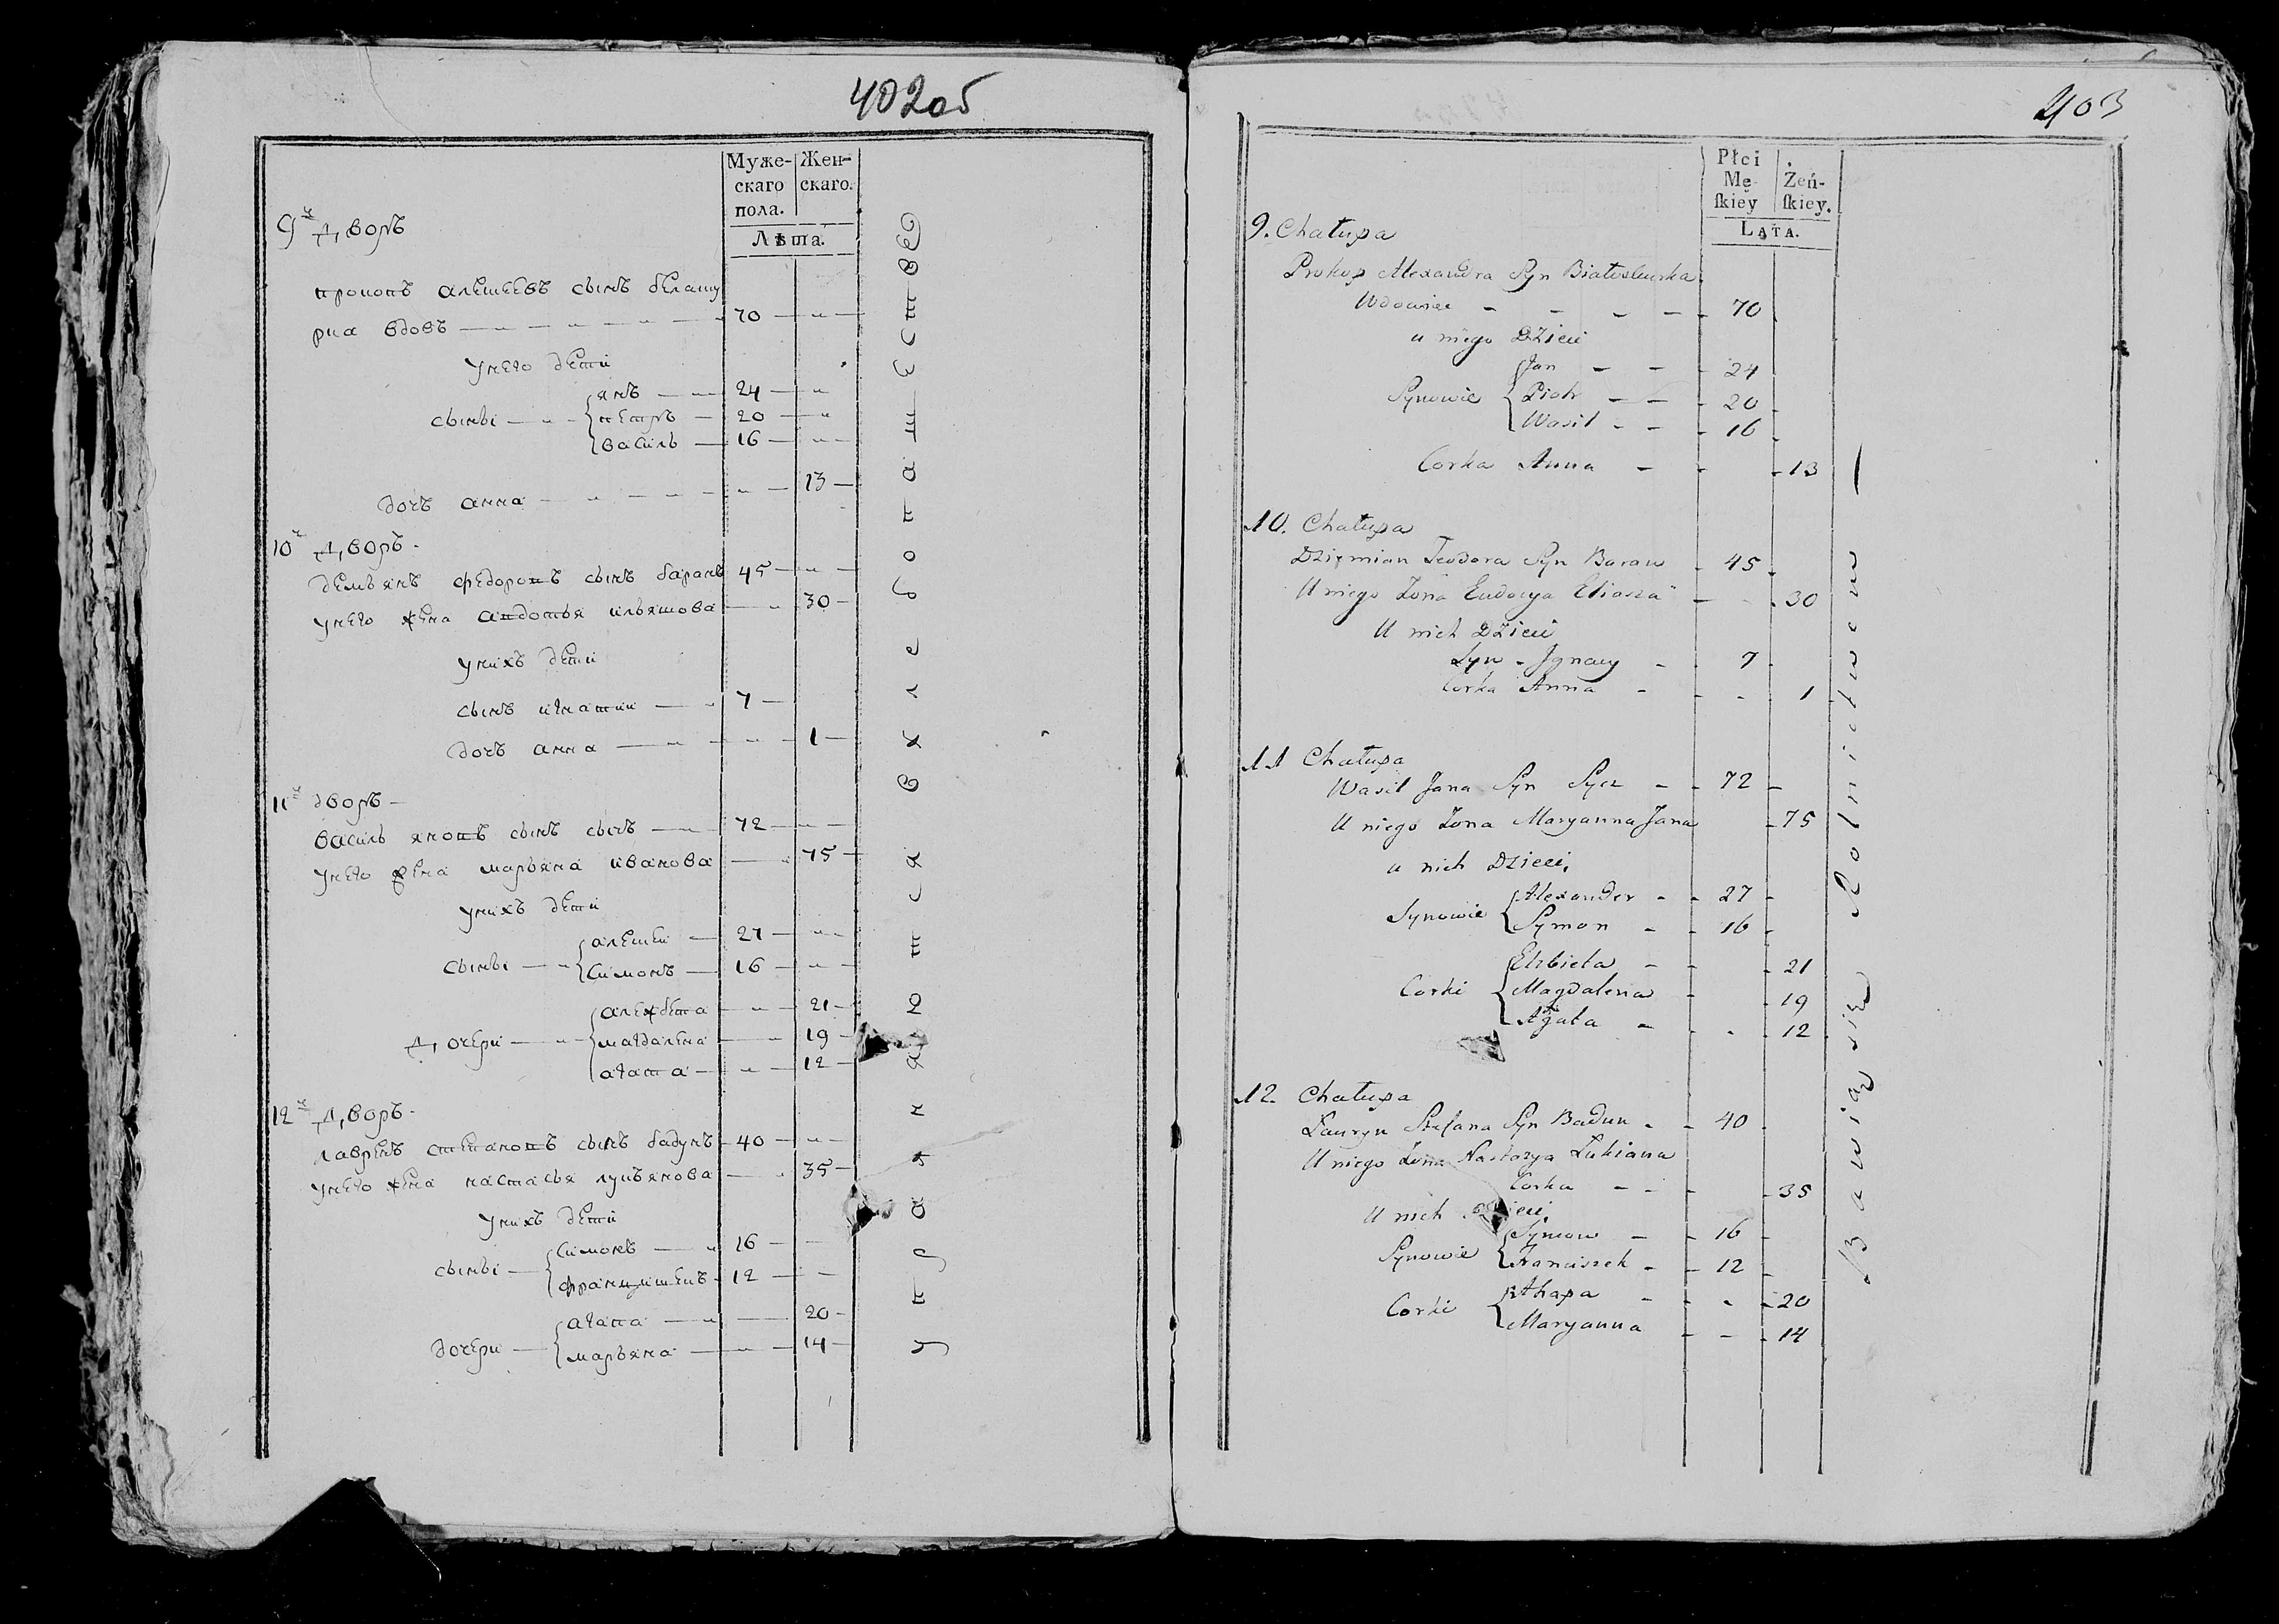 402об
Муже-
скаго
пола.
Жен-
скаго.
Лѣта.
9й Дворъ
прокопъ алешеевъ сынъ белашу
рка вдовъ 70
унего дети
сыны
янъ 24
петръ 20
василь 16
дочъ анна 13
10й Дворъ
демьянъ федоровъ сынъ баранъ 45
унего жена авдотья ильяшова 30
унихъ дети
сынъ игнатии 7
дочъ анна 1
11й дворъ
василь яновъ сынъ сычъ 72
унего жена марьяна иванова 75
унихъ дети
сыны
алешеи 27
симонъ 16
Дочери
алежбета 21
магдалена 19
агата 12
12й Дворъ
лавренъ степановъ сынъ бадунъ 40
унего жена настасья лукьянова 35
унихъ дети
сыны
симонъ 16
францишекъ 12
дочери
агапа 20
марьяна 14
упражняются в хлебопашестве
403
Płci
Mę-
skiey
Żeń-
skiey.
Lata.
9. Chałupa
Prokop Alexandra Syn Białoshurka
Wdowiec 70
u niego Dzieci
Synowie
Jan 24
Piotr 20
Wasil 16
Corka Anna 13
10. Chałupa
Dziemian Teodora Syn Baran 45
U niego Żona Eudocya Eliasza 30
U nich Dzieci
Syn Ignacy 7
Corka Anna 1
11 Chałupa
Wasil Jana Syn Sycz 72
U niego Żona Maryanna Jana 75
u nich Dzieci,
Synowie
Alexander 27
Symon 16
Corki
Elzbieta 21
Magdalena 19
Agata 12
12. Chałupa
Lauryn Stefana Syn Badun 40
U niego Żona Nastazya Łukiana
Corka 35
U nich Dzieci,
Synowie
Symon 16
Franciszek 12
Corki
Ahapa 20
Maryanna 14
Bawią się Rolnictwem